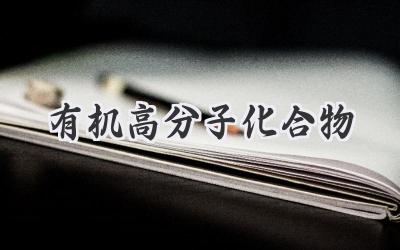 有机高分子化合物